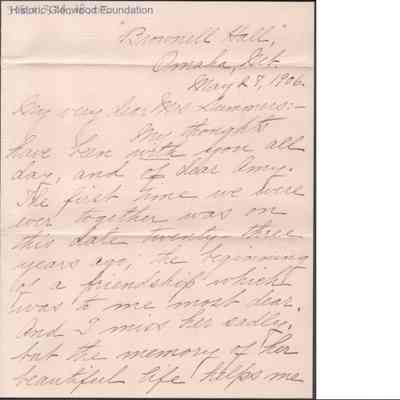 Historic Glenwood Foundation
"Brownell Hall",
Omaha, Neb.
May 28, 1906.
My very dear Mrs Summers:-
My thoughts
have been with you all
day, and of dear Amy.
The first time we were
ever together was on
this date twenty three
years ago; the beginning
of a friendship which
was to me most dear.
And I miss her sadly,
but the memory of her
beautiful life helps me